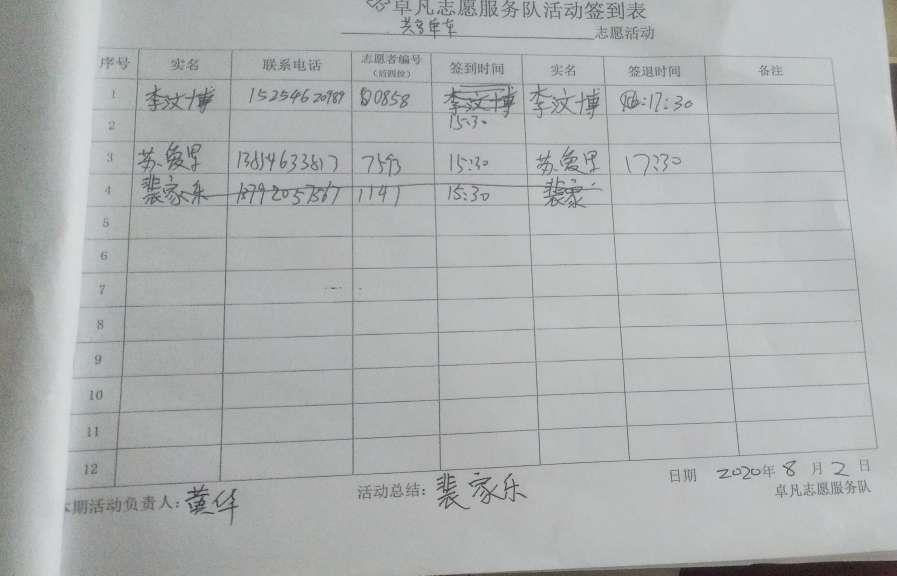 卓凡志愿服务队活动签到表
共享单车 志愿活动
序号 实名 联系电话 志愿者编号（后四位） 签到时间 实名 签退时间 备注
1 李汶博 15254620989 0858 李汶博 李汶博 17:30
2 15:30
3 苏爱早 13854633817 7593 15:30 苏爱早 17:30
4 裴家乐 13792057567 1141 15:30 裴家
5
6
7
8
9
10
11
12
本期活动负责人：黄华 活动总结：裴家乐 日期 2020年8月2日
卓凡志愿服务队